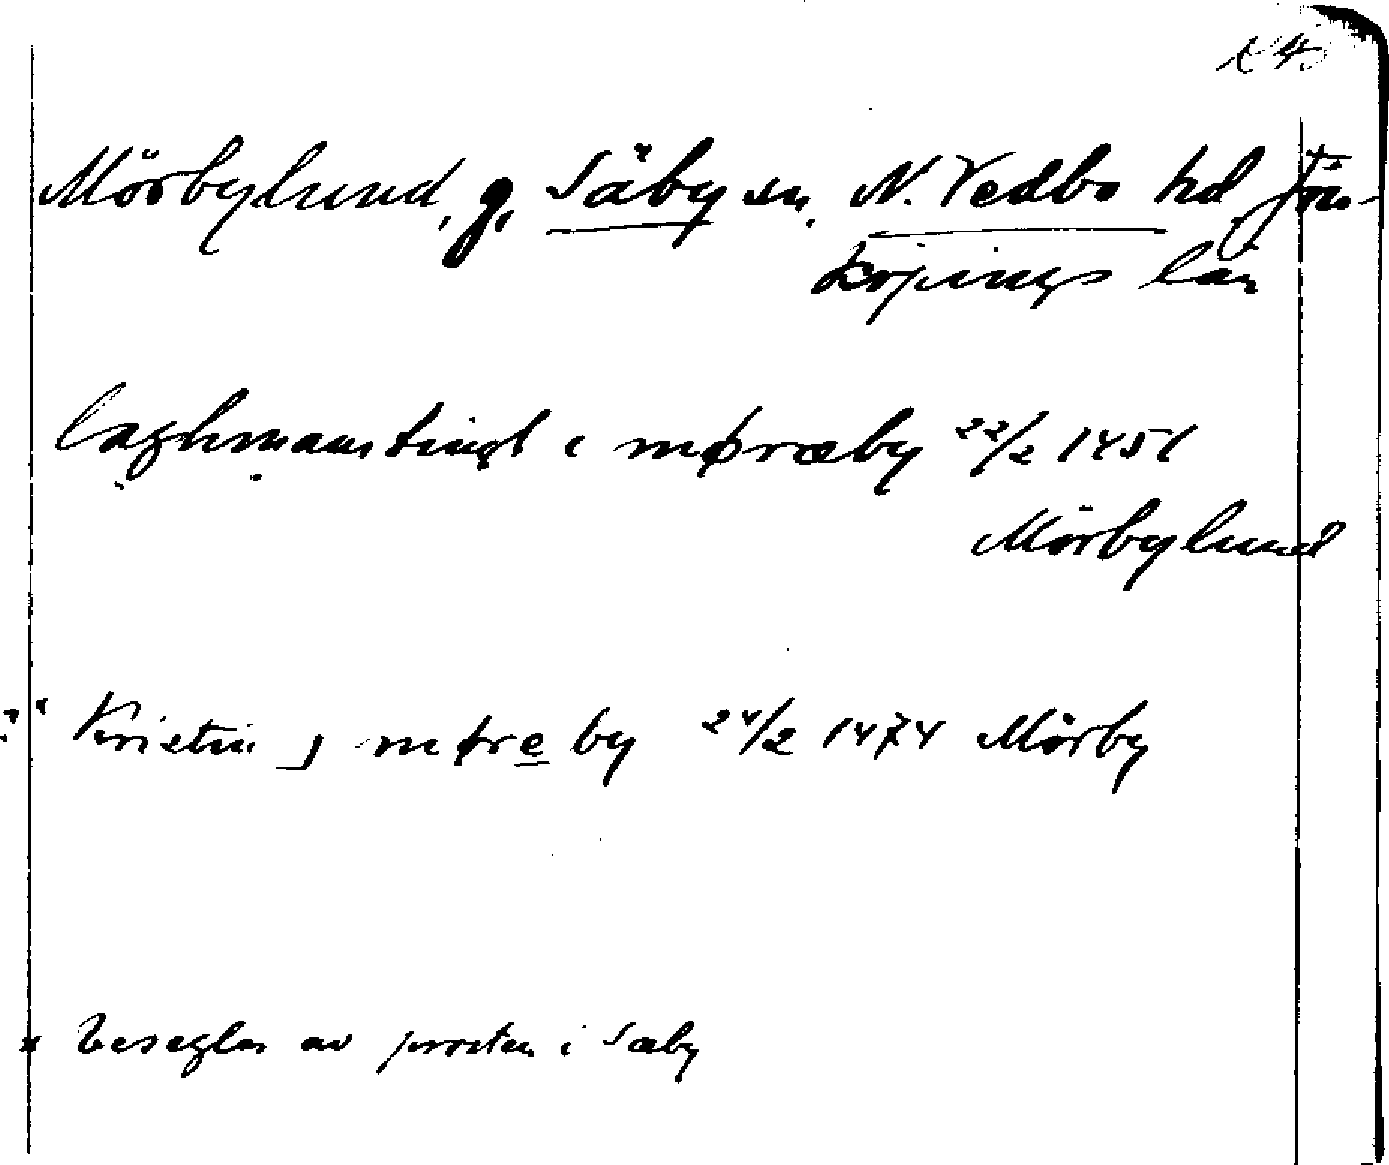 Mörbylund, g, Säby sn, N. Vedbo hd, Jön-
köpings län
laghmanstingh i møræby 22/2 1451
Mörbylund
Kristin j møreby 24/2 1474 Mörby
x beseglas av prosten i Sæby